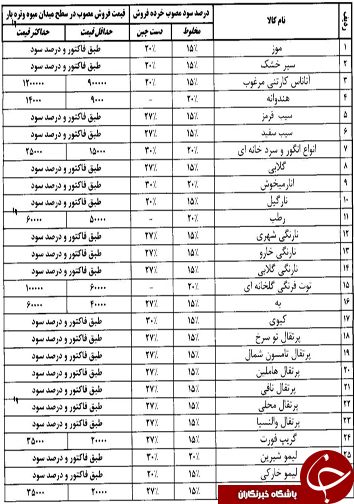 ردیف	نام کالا	درصد سود مصوب خرده فروش	قیمت فروش مصوب در سطح میدان میوه وتره بار
مخلوط	دست چین	حداقل قیمت	حداکثر قیمت
۱	موز	۱۵٪	۲۰٪	طبق فاکتور و درصد سود
۲	سیر خشک	۱۵٪	۲۰٪	طبق فاکتور و درصد سود
۳	آناناس کارتنی مرغوب	۱۵٪	۲۰٪	۹۰۰۰۰۰	۱۲۰۰۰۰۰
۴	هندوانه	۲۰٪	-	۹۰۰۰	۱۴۰۰۰
۵	سیب قرمز	۱۵٪	۲۷٪	طبق فاکتور و درصد سود
۶	سیب سفید	۱۵٪	۲۷٪	طبق فاکتور و درصد سود
۷	انواع انگور و سرد خانه ای	۲۰٪	۳۰٪	۱۵۰۰۰	۲۵۰۰۰
۸	گلابی	۱۵٪	۲۷٪	طبق فاکتور و درصد سود
۹	انارمیخوش	۲۰٪	۳۰٪	طبق فاکتور و درصد سود
۱۰	نارگیل	۱۵٪	۲۰٪	طبق فاکتور و درصد سود
۱۱	رطب	۲۰٪	-	۵۰۰۰۰	۶۰۰۰۰
۱۲	نارنگی شهری	۱۵٪	۲۷٪	طبق فاکتور و درصد سود
۱۳	نارنگی خارو	۱۵٪	۲۷٪	طبق فاکتور و درصد سود
۱۴	نارنگی گلابی	۱۵٪	۲۷٪	طبق فاکتور و درصد سود
۱۵	توت فرنگی گلخانه ای	۲۰٪	-	۶۰۰۰۰	۱۰۰۰۰۰
۱۶	به	۱۵٪	۲۷٪	۴۰۰۰۰	۶۰۰۰۰
۱۷	کیوی	۱۵٪	۳۰٪	طبق فاکتور و درصد سود
۱۸	پرتقال تو سرخ	۱۵٪	۲۷٪	طبق فاکتور و درصد سود
۱۹	پرتقال تامسون شمال	۱۵٪	۲۷٪	طبق فاکتور و درصد سود
۲۰	پرتقال هاملین	۱۵٪	۲۷٪	طبق فاکتور و درصد سود
۲۱	پرتقال نافی	۱۵٪	۲۷٪	طبق فاکتور و درصد سود
۲۲	پرتقال محلی	۱۵٪	۲۷٪	طبق فاکتور و درصد سود
۲۳	پرتقال والنسیا	۱۵٪	۲۷٪	طبق فاکتور و درصد سود
۲۴	گریپ فورت	۱۵٪	۲۷٪	۲۰۰۰۰	۳۵۰۰۰
۲۵	لیمو شیرین	۲۰٪	۳۰٪	طبق فاکتور و درصد سود
لیمو خارکی	۱۵٪	۲۰٪	طبق فاکتور و درصد سود
۱۵٪	۲۷٪	۲۰۰۰۰	۳۵۰۰۰
باشگاه خبرنگاران